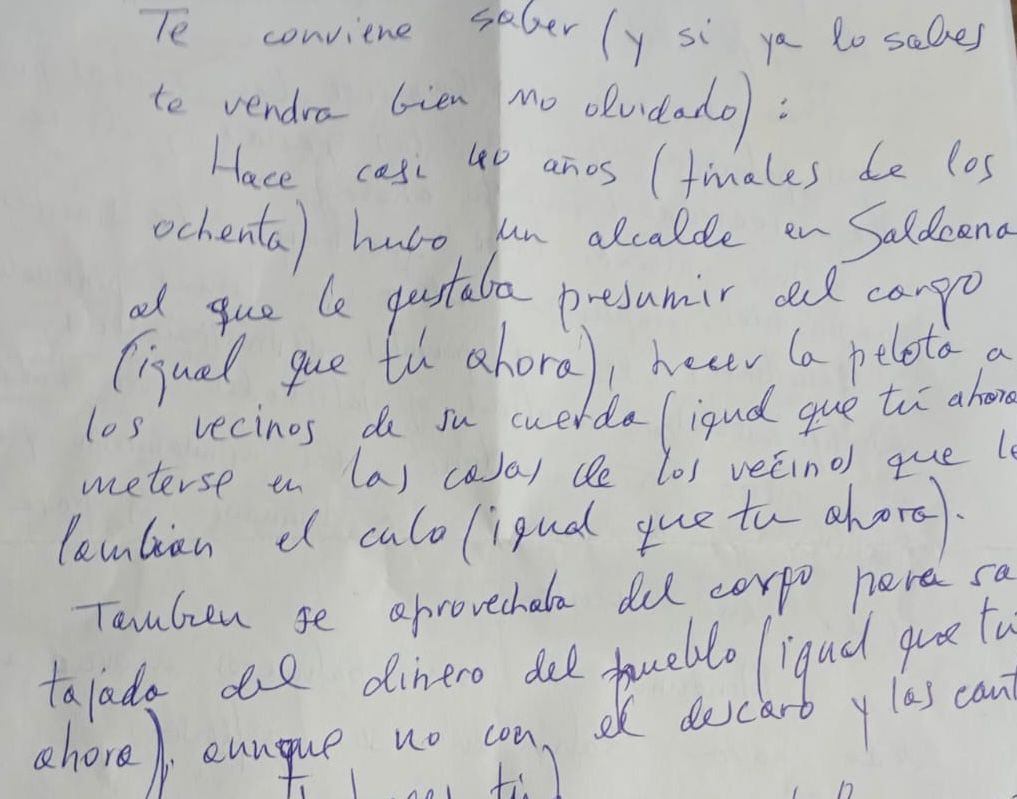 Te conviene saber (y si ya lo sabes
te vendra bien no olvidado) :
Hace casi 40 años (finales de los
ochenta) hubo un alcalde en Saldeana
al que le gustaba presumir del cargo
(igual que tú ahora), hacer la pelota a
los vecinos de su cuerda (igual que tú ahora
meterse en las casas de los vecinos que le
lambian el culo (igual que tu ahora).
Tambien se aprovechaba del cargo para sa
tajada del dinero del pueblo (igual que tú
ahora), aunque no con el descaro y las cant